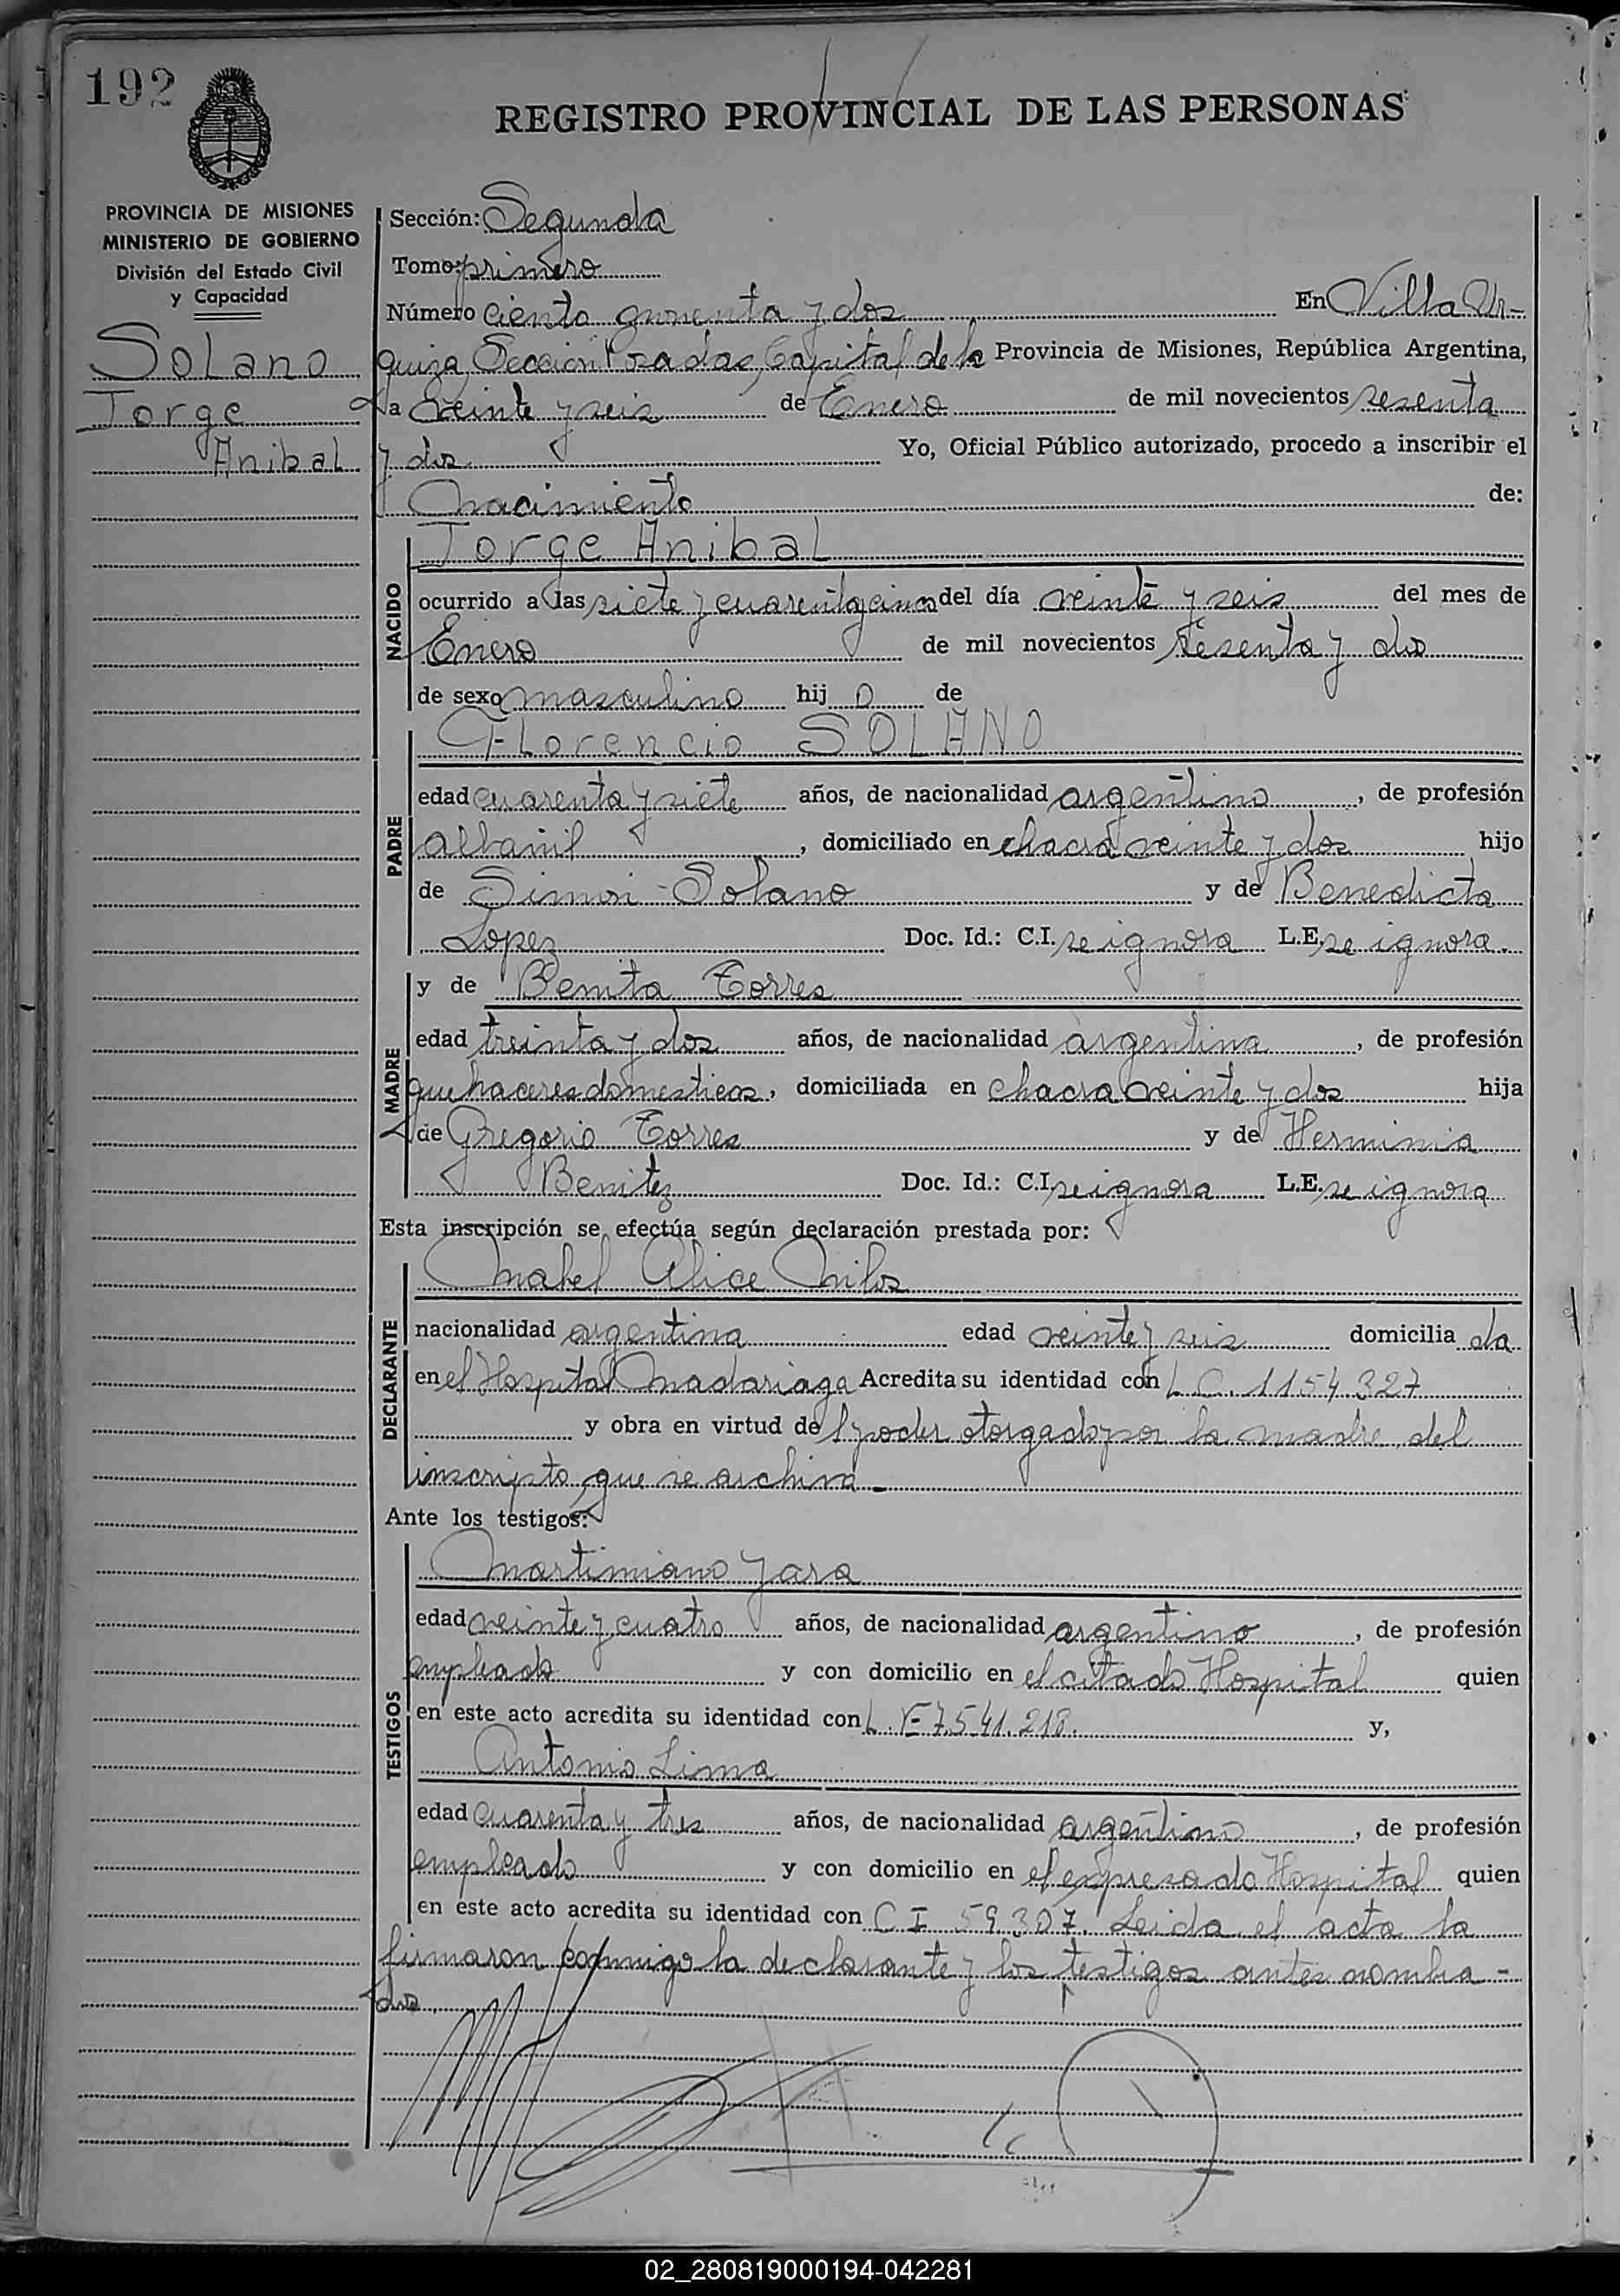 192
REGISTRO PROVINCIAL DE LAS PERSONAS
PROVINCIA DE MISIONES
MINISTERIO DE GOBIERNO
División del Estado Civil
y Capacidad
Solano
Jorge
Anibal
Sección: Segunda
Tomo: primero
Número ciento y dos En Villa Ur-
quiza, Sección Posadas, Capital de la Provincia de Misiones, República Argentina,
a veinte y seis de Enero de mil novecientos sesenta
y dos Yo, Oficial Público autorizado, procedo a inscribir el
nacimiento de:
NACIDO
Jorge Anibal
ocurrido a las siete y cuarenta y cinco del día veinte y seis del mes de
Enero de mil novecientos sesenta y dos
de sexo masculino hij o de
PADRE
Florencio SOLANO
edad cuarenta y siete años, de nacionalidad argentino, de profesión
albañil, domiciliado en chacra veinte y dos hijo
de Simon Solano y de Benedicta
Lopez Doc. Id.: C.I. se ignora L.E. se ignora.
MADRE
y de Benita Torres
edad treinta y dos años, de nacionalidad argentina, de profesión
quehaceres domesticos, domiciliada en chacra veinte y dos hija
de Gregorio Torres y de Herminia
Benitez Doc. Id.: C.I. se ignora L.E. se ignora
Esta inscripción se efectúa según declaración prestada por:
DECLARANTE
Mabel Alice
nacionalidad argentina edad veinte y seis domicilia da
en el Hospital Madariaga Acredita su identidad con L C. 1154.327
y obra en virtud del poder otorgado por la madre del
inscripto, que se archiva.-
Ante los testigos:
TESTIGOS
Martimiano Jara
edad veinte y cuatro años, de nacionalidad argentino, de profesión
empleado y con domicilio en el citado Hospital quien
en este acto acredita su identidad con L.E 7.541.218. y,
Antonio Lima
edad cuarenta y tres años, de nacionalidad argentino, de profesión
empleado y con domicilio en el expresado Hospital quien
en este acto acredita su identidad con C I 59.307. Leida el acta la
firmaron conmigo la declarante y los testigos antes nombra-
dos.
02_280819000194-042281